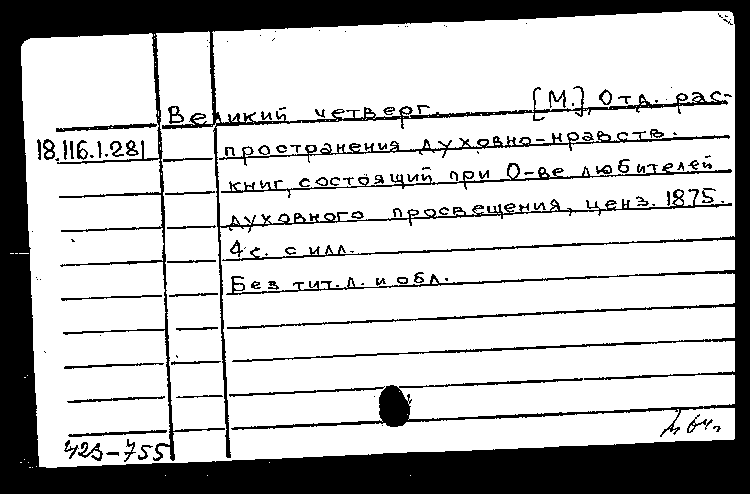 Великий четверг. [М.], Отд. рас-
18.116.1.281 пространения духовно-нравств.
книг, состоящий при О-ве любителей
духовного просвещения, ценз. 1875.
4 с. с илл.
Без тит. л. и обл.
423-755